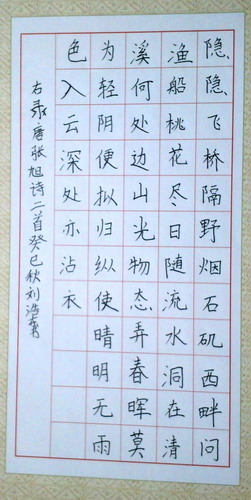 隐隐飞桥隔野烟石矶西畔问
渔船桃花尽日随流水洞在清
溪何处边山光物态弄春晖莫
为轻阴便拟归纵使晴明无雨
色入云深处亦沾衣
右录唐张旭诗二首癸巳秋刘浩